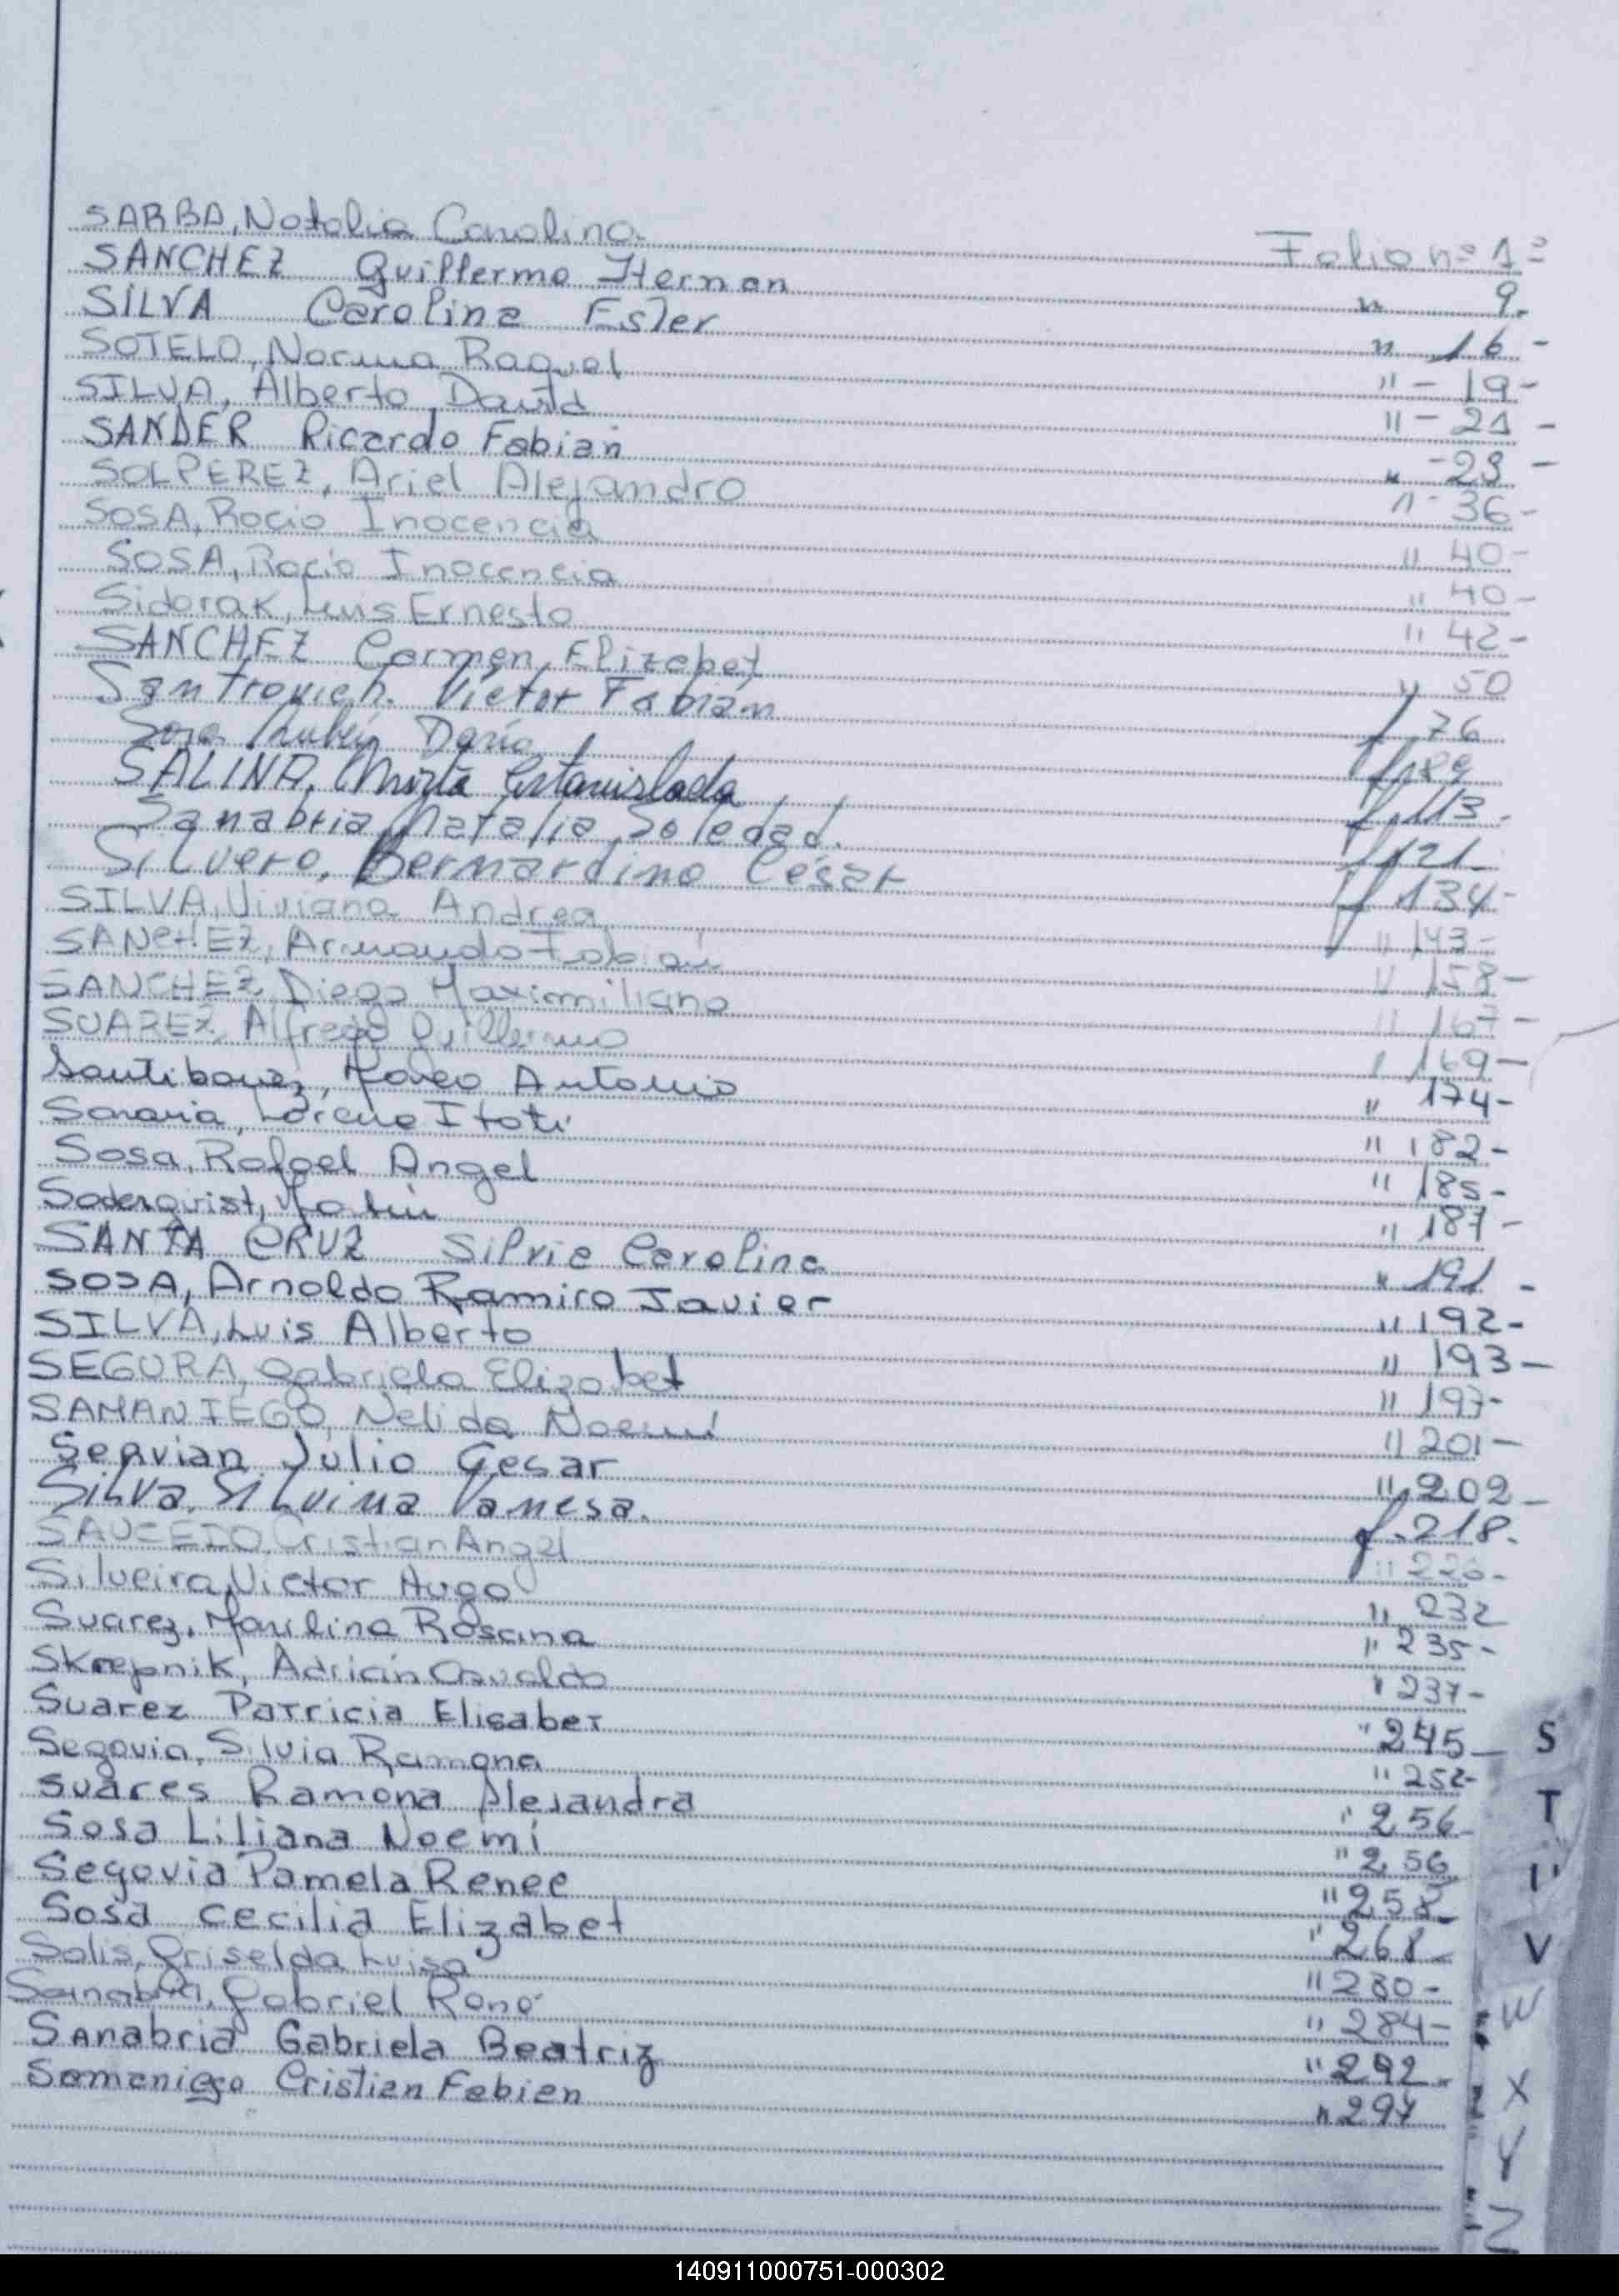 SARBA, Natalia Carolina Folio nº 1-
SANCHEZ Guillermo Hernan " 9.
SILVA Carolina Ester " 16 -
SOTELO, Norma Raquel " - 19 -
SILVA, Alberto David " - 21 -
SANDER Ricardo Fabian " - 23 -
SOLPEREZ, Ariel Alejandro " - 36 -
SOSA, Rocio Inocencia " 40 -
SOSA, Rocio Inocencia " 40 -
Sidorak, Luis Ernesto " 42 -
SANCHEZ Carmen Elizabet " 50
Santrovich. Víctor Fabián f. 76
Sosa Rubén Darío f. 89
SALINA, Mirta Estanislada f. 113 -
Sanabria, Natalia Soledad. f. 121
Silvero, Bernardino César f 134 -
SILVA, Viviana Andrea " 143 -
SANCHEZ, Armando Fabián " 158 -
SANCHEZ, Diego Maximiliano " 167 -
SUAREZ, Alfredo Guillermo " 169 -
Santibanez, Marco Antonio " 174 -
Sanaria, Lorena Itatí " 182 -
Sosa, Rafael Angel " 185 -
Soderquist, Martín " 187 -
SANTA CRUZ Silvia Carolina " 191 -
SOSA, Arnoldo Ramiro Javier " 192 -
SILVA, Luis Alberto " 193 -
SEGURA, Gabriela Elizabet " 197 -
SAMANIEGO, Nelida Noemí " 201 -
Servian Julio Cesar " 202 -
Silva, Silvina Vanesa. f. 218.
SAUCEDO, Cristian Angel " 226 -
Silveira, Victor Hugo " 232
Suarez, Marilina Rosana " 235 -
Skrepnik, Adrián Osvaldo " 237 -
Suarez Patricia Elisabet " 245 -
Segovia, Silvia Ramona " 252 -
Suares Ramona Alejandra " 256 -
Sosa Liliana Noemí " 256
Segovia Pamela Renee " 258 -
Sosa Cecilia Elizabet " 268 -
Solis, Griselda Luisa " 280 -
Sanabria, Gabriel René " 284 -
Sanabria Gabriela Beatriz " 292 -
Samaniego Cristian Fabian " 297
S
T
U
V
W
X
Y
Z
140911000751-000302